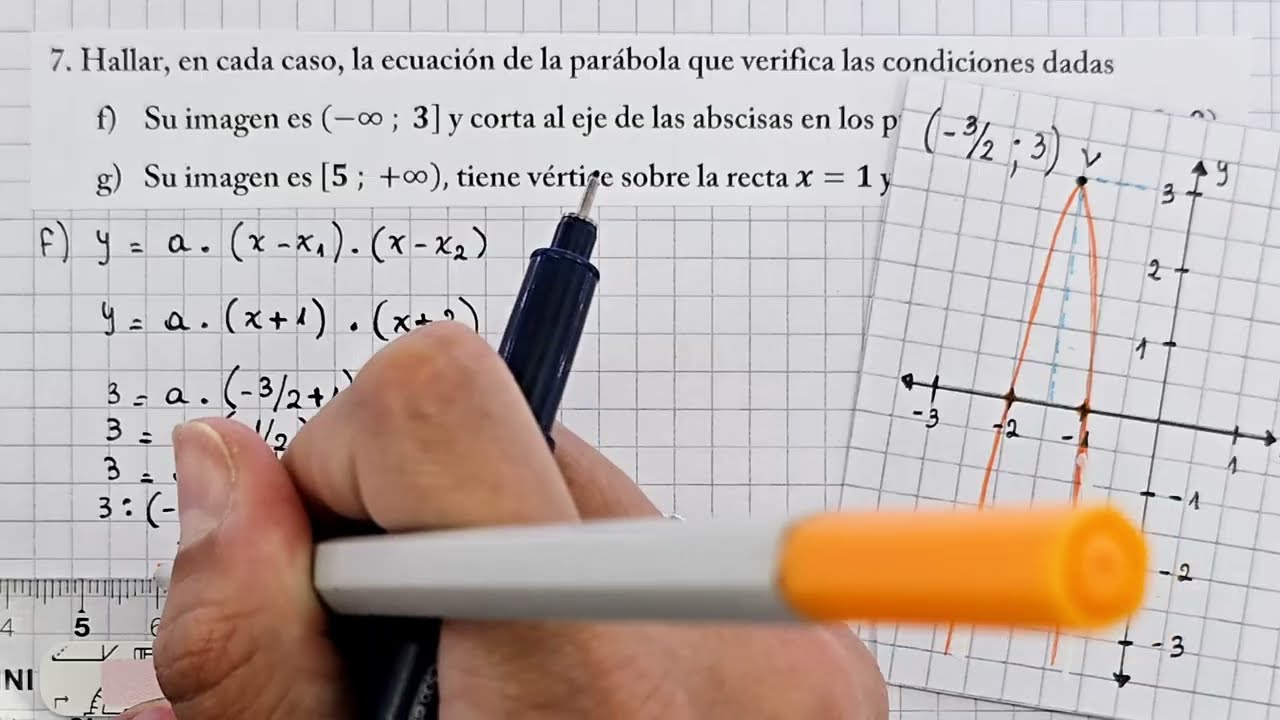 7. Hallar, en cada caso, la ecuación de la parábola que verifica las condiciones dadas
f) Su imagen es (−∞ ; 3] y corta al eje de las abscisas en los
g) Su imagen es [5 ; +∞), tiene vértice sobre la recta x = 1 y
F) y = a · (x − x₁) · (x − x₂)
y = a · (x + 1) · (x +
3 = a · (-3/2 +
3 =
3 =
3 : (-
(-3/2 ; 3) V
y
3
2
1
-3 -2 -1 1
-1
-2
-3
4 5 6
NI